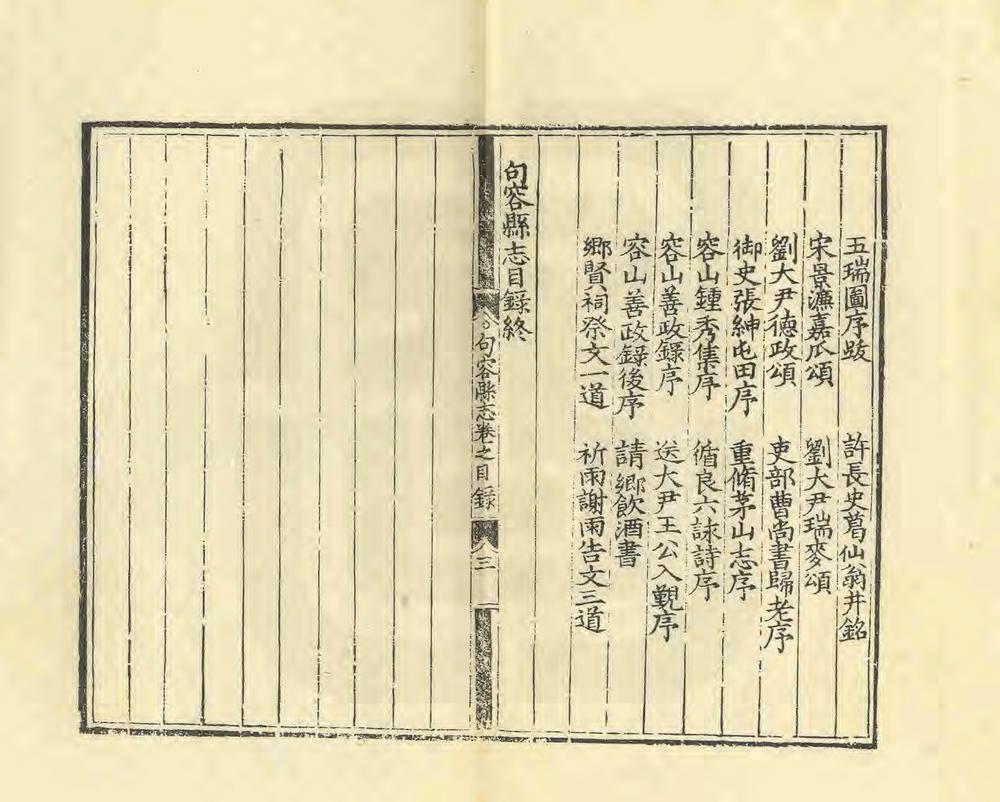 五瑞圖序跋　許長史葛仙翁井銘
宋景濂嘉瓜頌　劉大尹瑞麥頌
劉大尹德政頌　吏部曹尚書歸老序
御史張紳屯田序　重脩茅山志序
容山鍾秀集序　循良六詠詩序
容山善政錄序　送大尹王公入覲序
容山善政錄後序　請鄉飲酒書
鄉賢祠祭文一道　祈雨謝雨告文三道
句容縣志目錄終
句容縣志卷之目錄　三